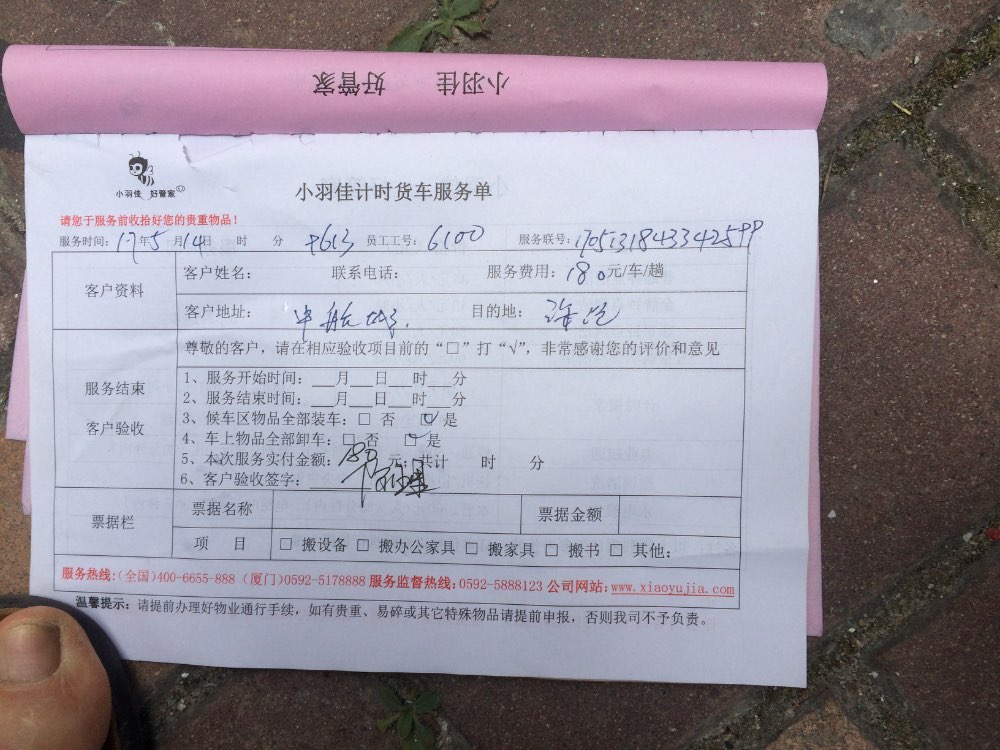 小羽佳 好管家
小羽佳 好管家
小羽佳计时货车服务单
请您于服务前收拾好您的贵重物品！
服务时间：17年5月14日 时 分 员工工号：6100 服务联号：
客户资料
客户姓名： 联系电话： 服务费用：180元/车/趟
客户地址： 目的地：
服务结束
客户验收
尊敬的客户，请在相应验收项目前的“□”打“√”，非常感谢您的评价和意见
1、服务开始时间：___月___日___时___分
2、服务结束时间：___月___日___时___分
3、候车区物品全部装车：□ 否 ☑ 是
4、车上物品全部卸车：□ 否 ☑ 是
5、本次服务实付金额：180元；共计 时 分
6、客户验收签字：
票据栏
票据名称 票据金额
项 目 □ 搬设备 □ 搬办公家具 □ 搬家具 □ 搬书 □ 其他：
服务热线：(全国)400-6655-888 (厦门)0592-5178888 服务监督热线：0592-5888123 公司网站：www.xiaoyujia.com
温馨提示：请提前办理好物业通行手续，如有贵重、易碎或其它特殊物品请提前申报，否则我司不予负责。